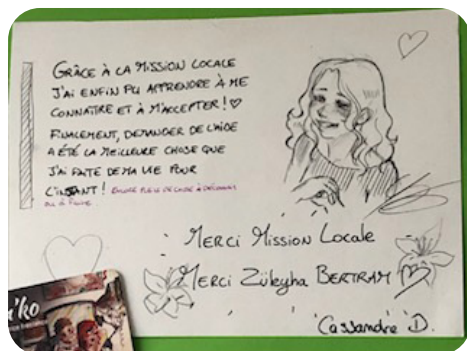 GRÂCE À LA MISSION LOCALE
J'AI ENFIN PU APPRENDRE À ME
CONNAÎTRE ET À M'ACCEPTER ! ♡
FINALEMENT, DEMANDER DE L'AIDE
A ÉTÉ LA MEILLEURE CHOSE QUE
J'AI FAITE DE MA VIE POUR
L'INSTANT ! ENCORE PLEIN DE CHOSE À DÉCOUVRIR
OU À FAIRE
MERCI MISSION LOCALE
MERCI Züleyha BERTRAM
Cassandre D.
'ko